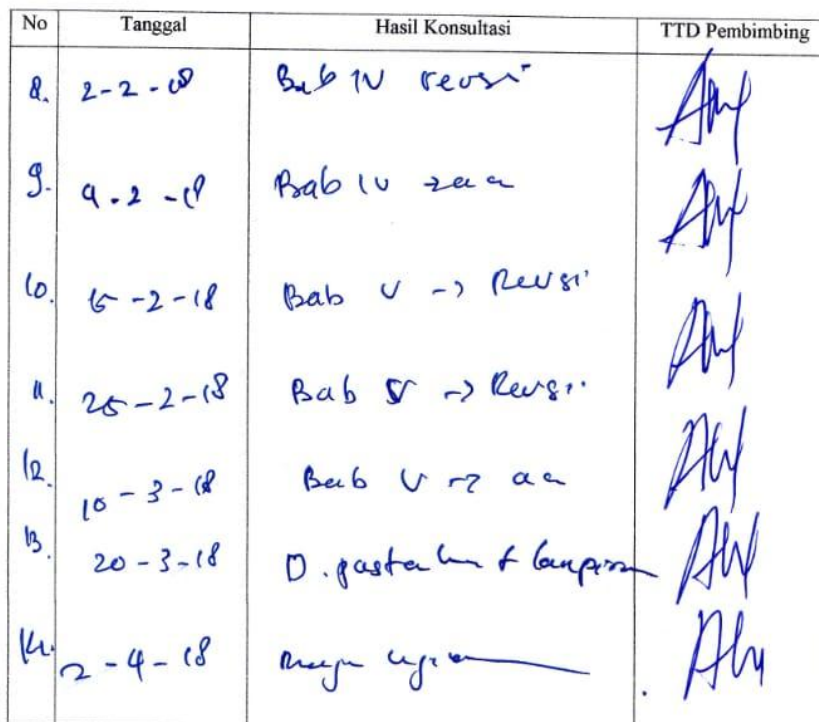 No Tanggal Hasil Konsultasi TTD Pembimbing
8. 2-2-18 Bab IV revisi
9. 9-2-18 Bab IV → acc
10. 15-2-18 Bab V → Revisi
11. 25-2-18 Bab V → Revisi
12. 10-3-18 Bab V → acc
13. 20-3-18 D. pustaka + lampiran
14. 2-4-18 Maju ujian